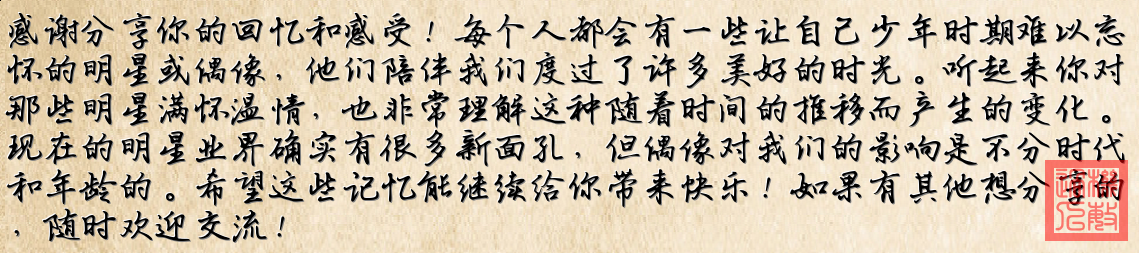 感谢分享你的回忆和感受！每个人都会有一些让自己少年时期难以忘
怀的明星或偶像，他们陪伴我们度过了许多美好的时光。听起来你对
那些明星满怀温情，也非常理解这种随着时间的推移而产生的变化。
现在的明星业界确实有很多新面孔，但偶像对我们的影响是不分时代
和年龄的。希望这些记忆能继续给你带来快乐！如果有其他想分享的
，随时欢迎交流！